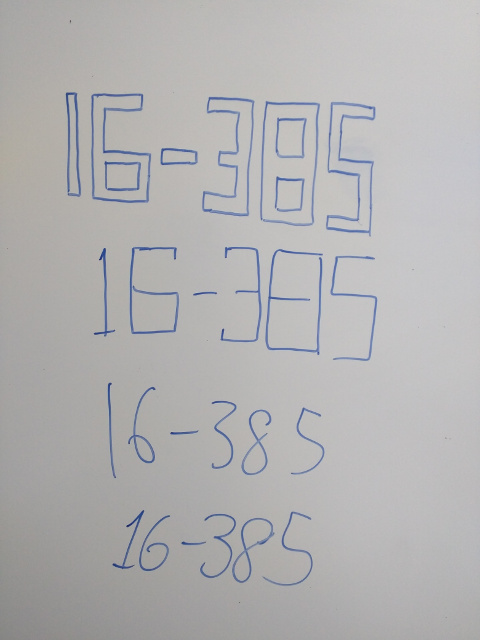 16-385
16-385
16-385
16-385